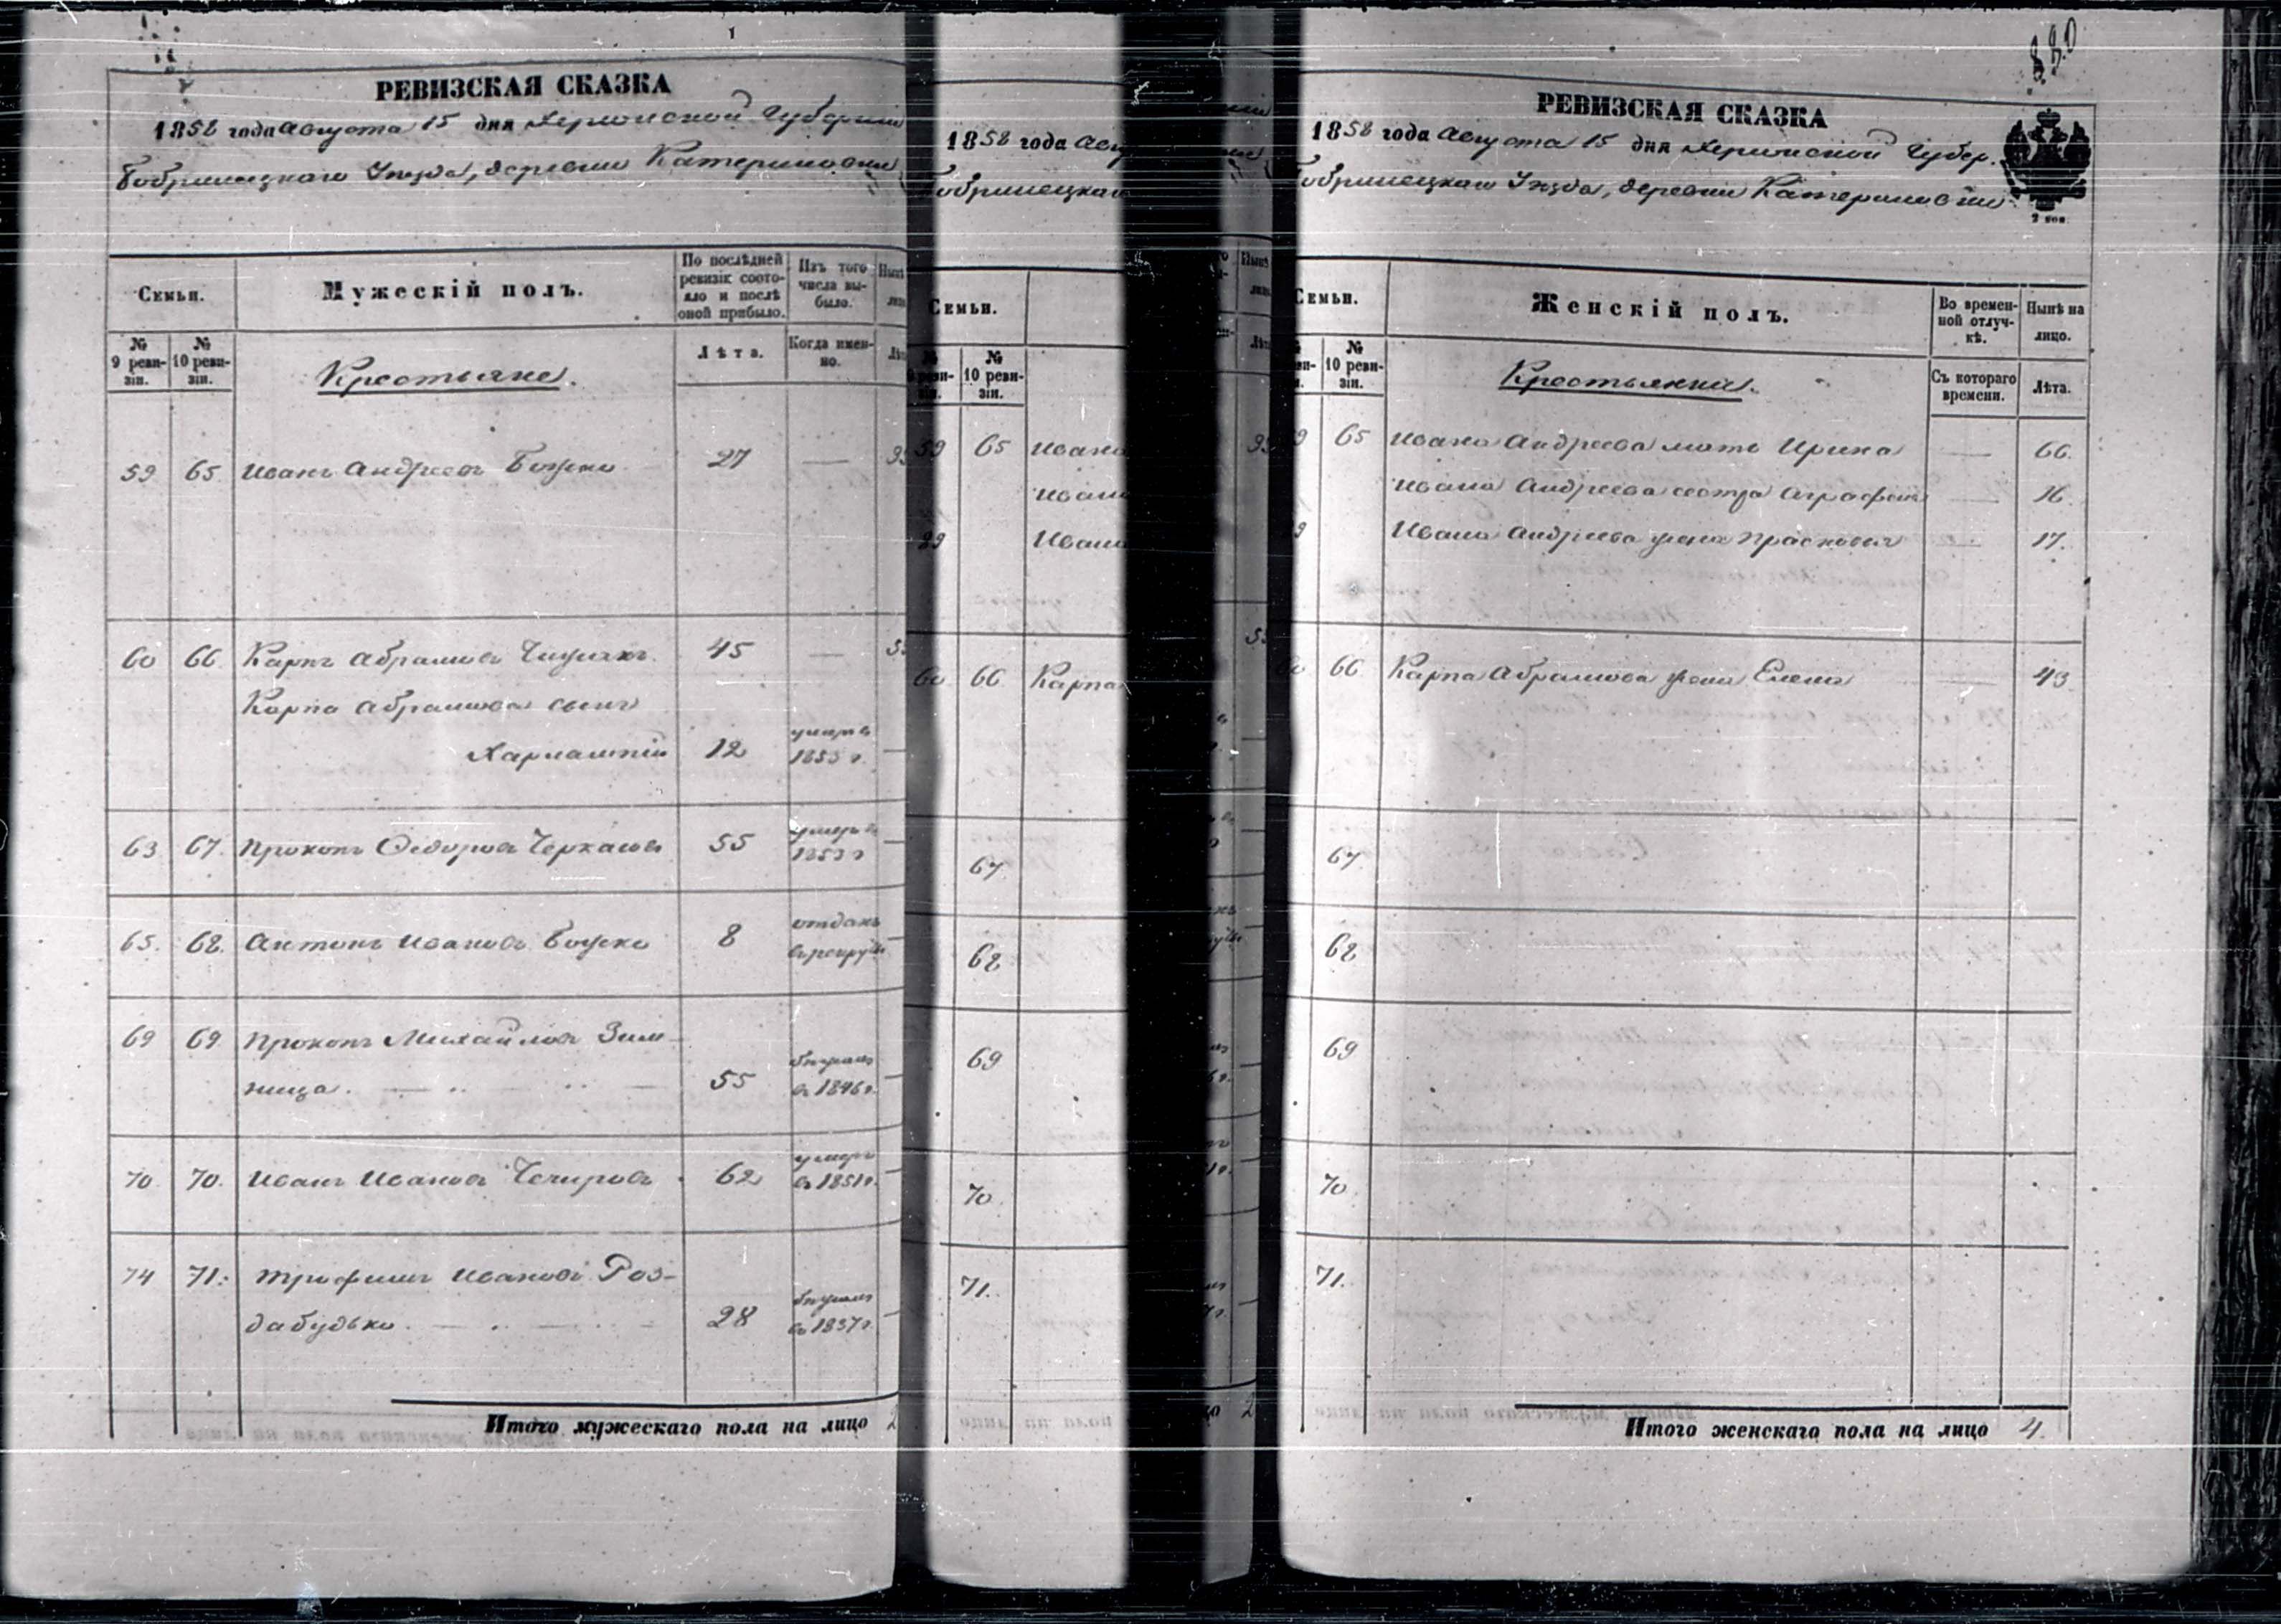 1
РЕВИЗСКАЯ СКАЗКА
1858 года Августа 15 дня Херсонской Губерніи
Бобринецкаго Уѣзда, деревни Катериновки
Семьи.
Мужескій полъ.
По послѣдней ревизіи состояло и послѣ оной прибыло.
Изъ того числа выбыло.
№ 9 ревизіи.
№ 10 ревизіи.
Крестьяне.
Лѣта.
Когда именно.
59 65 Иванъ Андреевъ Божко 27 —
60 66 Карпъ Абрамовъ 45 —
Карпа Абрамова сынъ
Харлампій 12 умеръ в 1853 г.
63 67. Прокопъ Федоровъ Черкасовъ 55 умеръ в 1853 г
65. 68. Антонъ Ивановъ Божко 8 отданъ
69 69 Прокопъ Михайловъ Зим-
ница. 55 бѣжалъ в 1846 г.
70 70. Иванъ Ивановъ 62 умеръ в 1851 г.
74 71. Трофимъ Ивановъ Роз-
дабудько. 28 бѣжалъ в 1837 г.
Итого мужескаго пола на лицо 2
1858 года Авгу
Бобринецкаго
Семьи.
№ 10 ревизіи.
59 65 Ивана
Ивана
Ивана
60 66 Карпа
67
68
69
70
71.
880
РЕВИЗСКАЯ СКАЗКА
1858 года Августа 15 дня Херсонской Губер.
Бобринецкаго Уѣзда, деревни Катериновки
2 коп.
Семьи.
Женскій полъ.
Во временной отлучкѣ.
Нынѣ на лицо.
№ 10 ревизіи.
Крестьянки.
Съ котораго времени.
Лѣта.
65 Ивана Андреева мать Ирина — 66.
Ивана Андреева сестра Аграфена — 16.
Ивана Андреева жена Прасковья — 17.
66 Карпа Абрамова жена Елена — 43
67
68
69
70
71.
Итого женскаго пола на лицо 4.